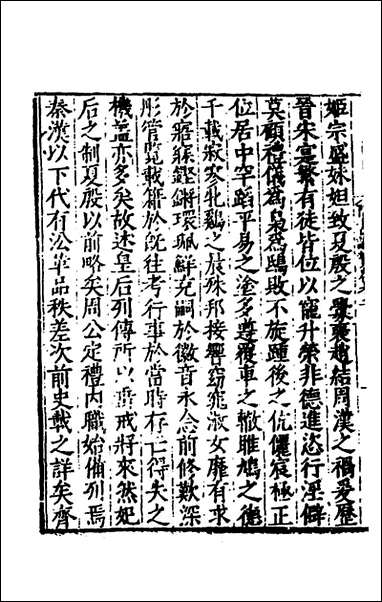 姬宗盛妹妲致夏殷之釁褒趙結周漢之禍爰歷
晉宋寔繁有徒皆位以寵升榮非德進恣行淫僻
莫顧禮儀爲梟爲鴟敗不旋踵後之伉儷宸極正
位居中罕蹈平易之塗多遵覆車之轍雎鳩之德
千載寂寥牝鷄之晨殊邦接響窈窕淑女靡有求
於寤寐鏗鏘環珮鮮克嗣於徽音永念前修歎深
彤管覽載籍於旣往考行事於當時存亡得失之
機蓋亦多矣故述皇后列傳所以垂戒將來然妃
后之制夏殷以前略矣周公定禮内職始備列焉
秦漢以下代有沿革品秩差次前史載之詳矣齊